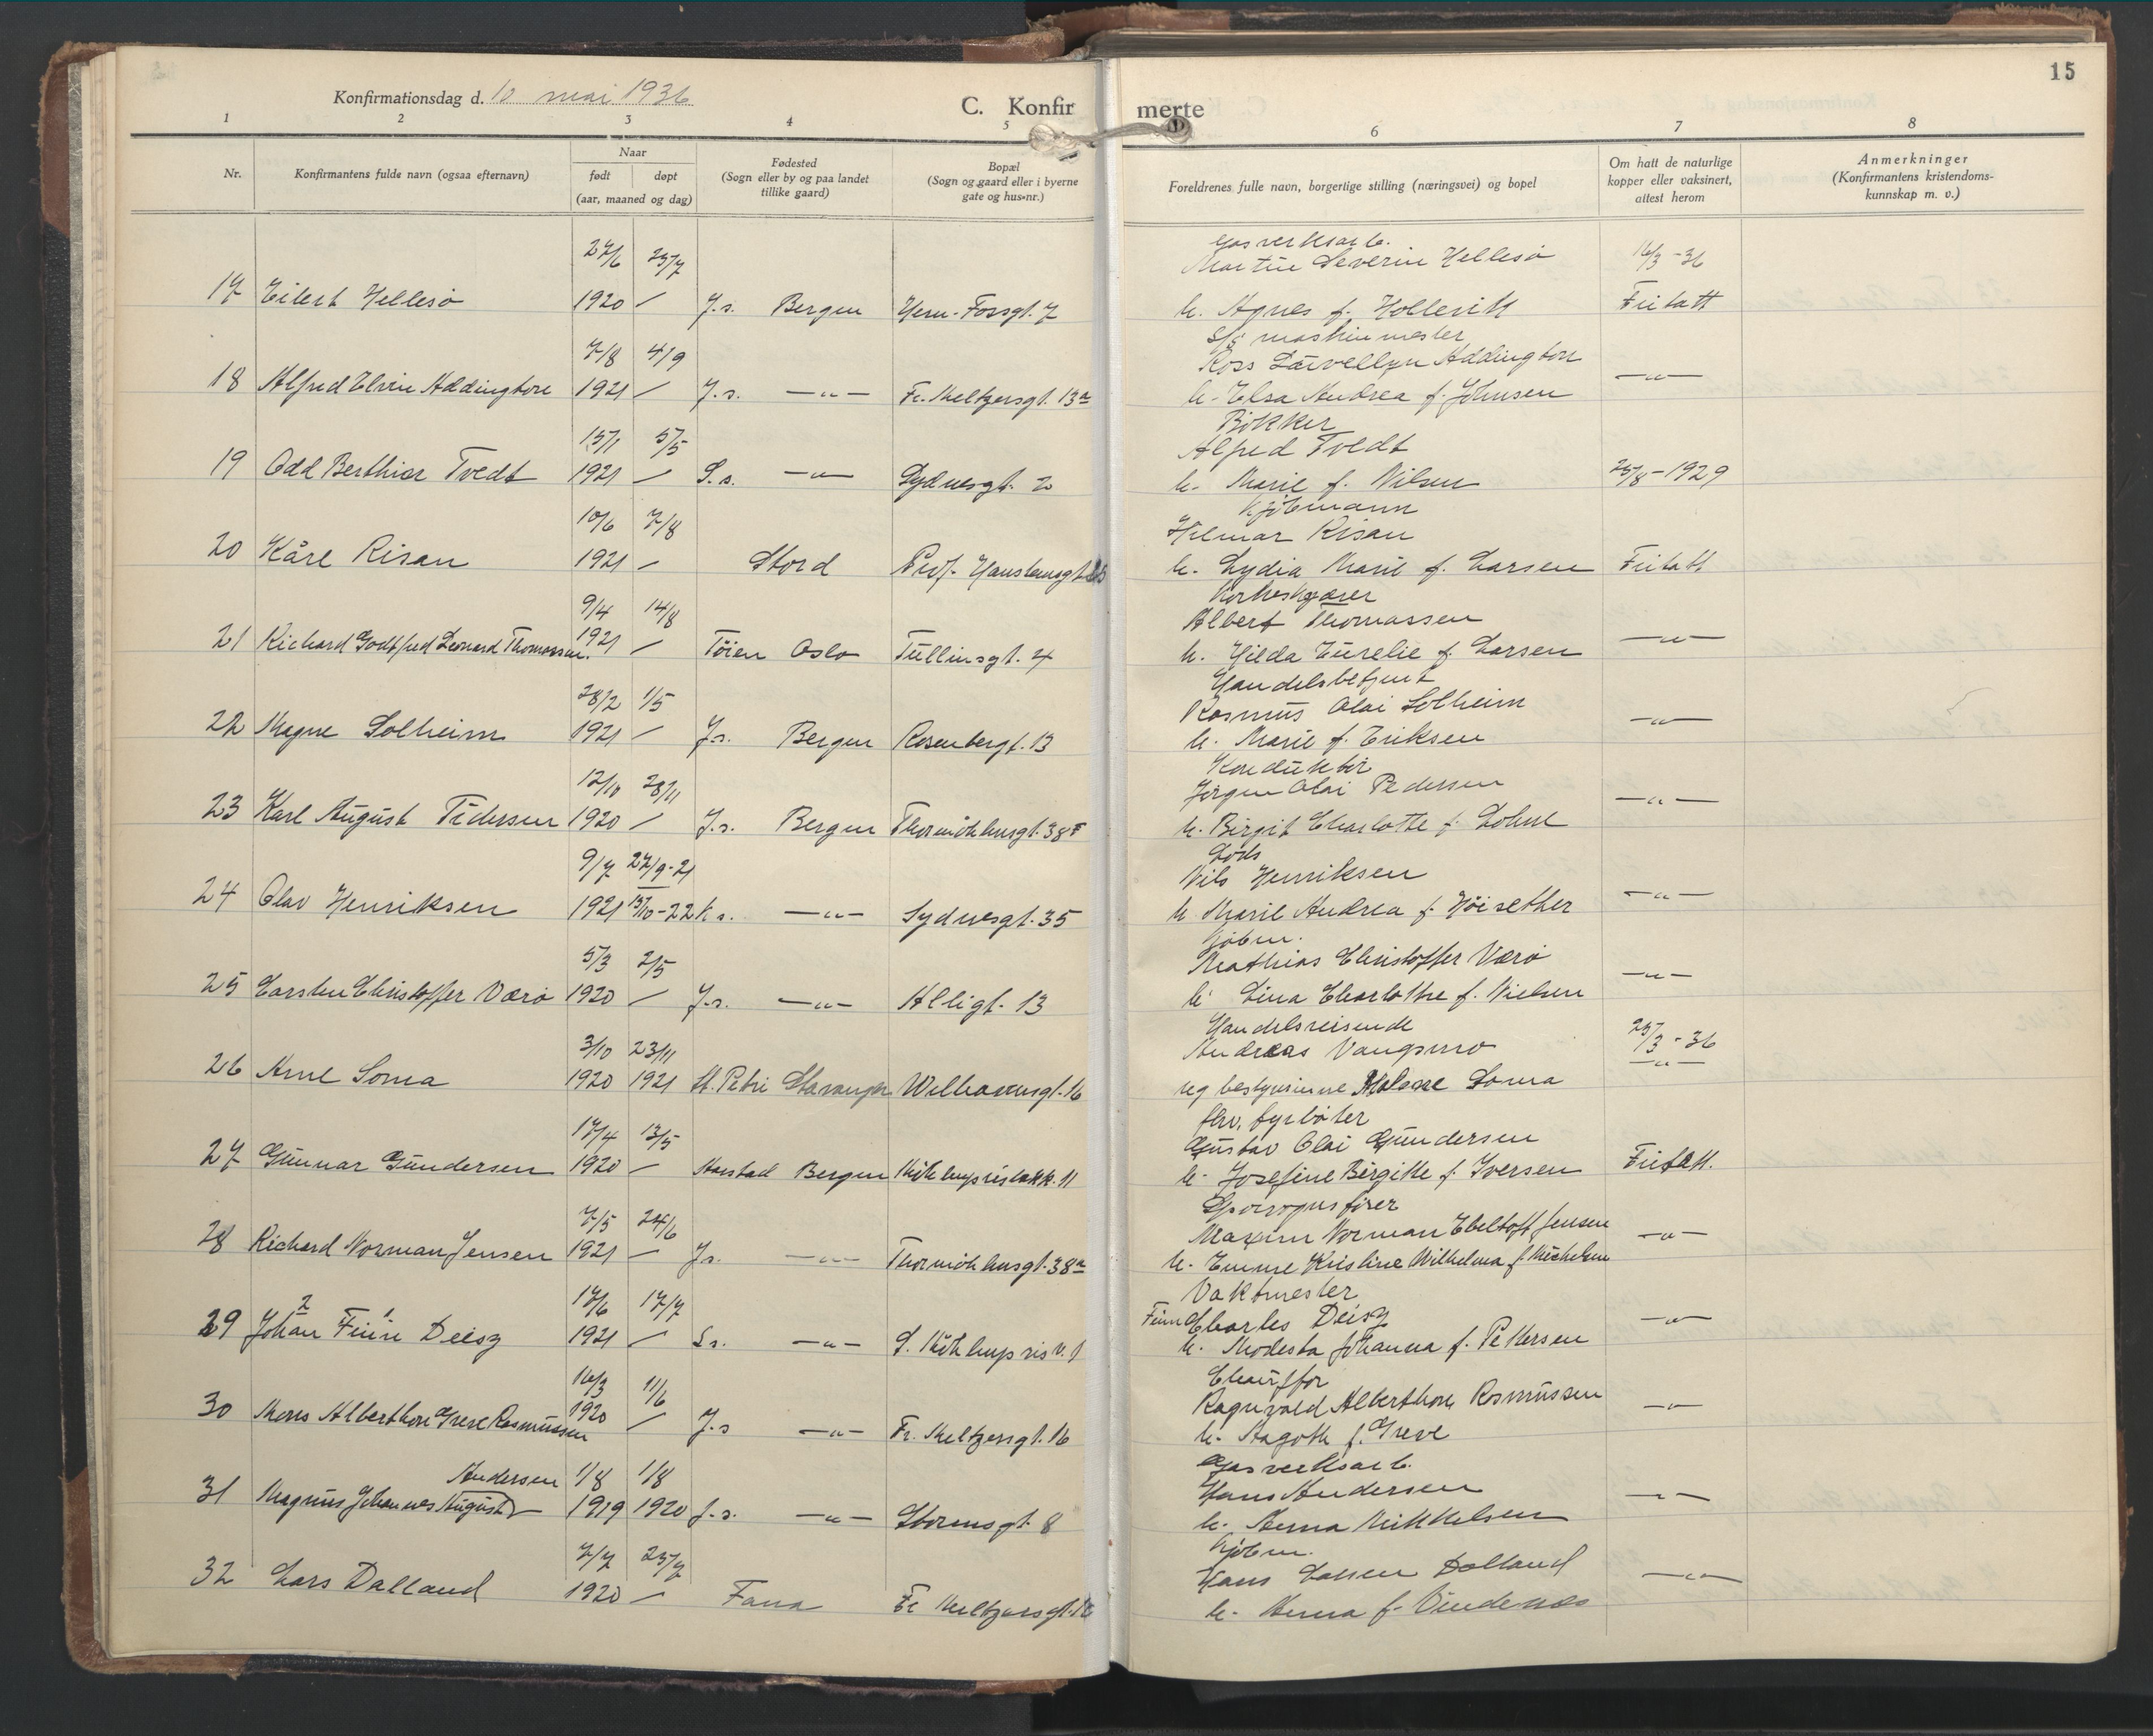 15
Konfirmationsdag d. 10 mai 1936
C. Konfir
merte
1 2 3 4 5 6 7 8
Nr.
Konfirmantens fulde navn (ogsaa efternavn)
Naar
født døpt
(aar, maaned og dag)
Fødested
(Sogn eller by og paa landet
tillike gaard)
Bopæl
(Sogn og gaard eller i byerne
gate og hus-nr.)
Foreldrenes fulle navn, borgerlige stilling (næringsvei) og bopel
Om hatt de naturlige
kopper eller vaksinert,
attest herom
Anmerkninger
(Konfirmantens kristendoms-
kunnskap m. v.)
27/6 23/7 gasverksarb.
Martin Severin Hellesø 16/3-36
17 Eilert Hellesø 1920 / J.s. Bergen Herm. Fossgt. 7 h. Agnes f. Fritatt
7/8 4/9 maskinmester
Ross Addington
18 Alfred Addington 1921 / J.s. —"— Fr. Meltzersgt. 13a h. Elsa Andrea f. Johnsen —"—
15/1 5/5 Bøkker
Alfred Tvedt
19 Odd Berthior Tvedt 1921 / S.s. —"— Sydnesgt. 2 h. Marie f. Nilsen 25/8-1929
10/6 7/8 Kjøbmann
Hilmar Risan
20 Kåre Risan 1921 / Stord Prof. Hansteensgt. h. Lydia Marie f. Larsen Fritatt
9/4 14/8 Korkeskjærer
Albert Thomassen
21 Richard Godtfred Leonard Thomassen 1921 / Tøien Oslo Tullinsgt. 4 h. Hilda f. Larsen —"—
28/2 1/5 Handelsbetjent
Rasmus Olai Solheim
22 Magne Solheim 1921 / J.s. Bergen Rosenbergt. 13 h. Marie f. Eriksen —"—
12/10 28/11 Konduktør
Jørgen Olai Pedersen
23 Karl August Pedersen 1920 / J.s. Bergen Thormøhlensgt. 38F h. Birgit Charlotte f. Lohne —"—
9/7 27/9-21 Lods
Nils Henriksen
24 Olav Henriksen 1921 15/10-22 K.s. —"— Sydnesgt. 35 h. Marie Andrea f. Høisether —"—
5/3 2/5 Kjøbm.
Mathias Christoffer Værø
25 Carsten Christoffer Værø 1920 / J.s. —"— Allégt. 13 h. Lina Charlothe f. Nielsen —"—
3/10 23/11 Handelsreisende
Andreas Vangsmo 25/3-36
26 Arne Soma 1920 1921 St. Petri Stavanger Welhavensgt. 16 og bestyrerinne Soma —"—
17/4 13/5 fhv. fyrbøter
Gustav Olai Gundersen
27 Gunnar Gundersen 1920 / Harstad Bergen Møhlenprisbakk. 11 h. Josefine Birgitte f. Iversen Fritatt.
7/5 24/6 Sporvognsfører
Maxim Norman Ebeltoft Jensen
28 Richard Norman Jensen 1921 / J.s. —"— Thormøhlensgt. 38a h. Emma Kristine Wilhelma f. Michelsen —"—
17/6 17/7 Vaktmester
2 1 Finn Charles Deisz
29 Johan Finn Deisz 1921 / S.s. —"— S. Møhlenprisv. 1 h. Modesta Johanna f. Pettersen —"—
16/3 11/6 Chauffør
Ragnvald Alberthon Rasmussen
30 Mons Alberthon Greve Rasmussen 1920 / J.s —"— Fr. Meltzersgt. 16 h. Magoth f. Greve —"—
Andersen 1/8 1/8 Gasverksarb.
Hans Andersen
31 Magnus Johannes August 1919 1920 J.s. —"— Stormsgt. 8 h. Anna Mikkelsen —"—
7/7 25/7 Kjøbm.
Hans Larsen Dalland
32 Lars Dalland 1920 / Fana Fr. Meltzersgt. h. Anna f. Vindenes —"—